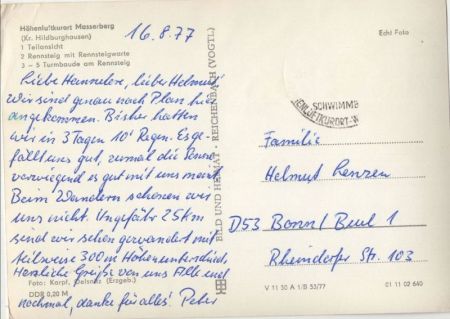 Höhenluftkurort Masserberg
(Kr. Hildburghausen)
1 Teilansicht
2 Rennsteig mit Rennsteigwarte
3 – 5 Turmbaude am Rennsteig
16.8.77
Liebe Hannelore, liebe Helmut!
Wir sind genau nach Plan hier
angekommen. Bisher hatten
wir in 3 Tagen 10' Regen. Es ge-
fällt uns gut, zumal die Sonne
vorwiegend es gut mit uns meint.
Beim Wandern schonen wir
uns nicht. Ungefähr 25km
sind wir schon gewandert mit
teilweise 300m Höhenunterschied.
Herzliche Grüße von uns Alle und
nochmal, danke für alles! Peter
Foto: Karpf, Oelsnitz (Erzgeb.)
DDR 0,20 M
BILD UND HEIMAT · REICHENBACH (VOGTL)
Echt Foto
SCHWIMMB
HENLUFTKURORT-W
Familie
Helmut Lenzen
D53 Bonn/Beul 1
Rheindorfer Str. 103
V 11 30 A 1/B 53/77
01 11 02 640